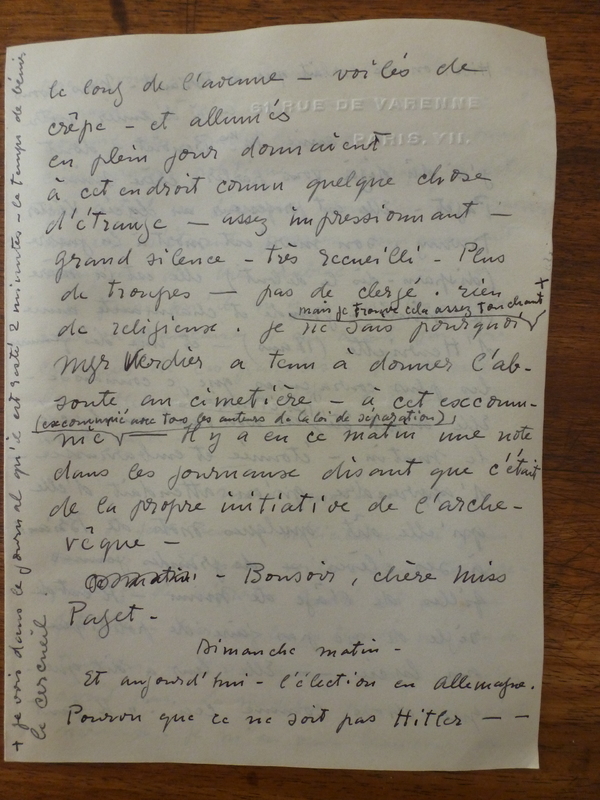 le long de l'avenue – voilés de
61 RUE DE VARENNE
crêpe – et allumés
PARIS. VII.
en plein jour donnaient
à cet endroit connu quelque chose
d'étrange – assez impressionnant –
grand silence – très recueilli – Plus
de troupes – pas de clergé. rien +
mais je trouve cela assez touchant
de religieuse. je ne sais pourquoi
Mgr Verdier a tenu à donner l'ab-
soute au cimetière – à cet excom-
(excommunié avec tous les auteurs de la loi de séparation),
nié – Il y a eu ce matin une note
dans les journaux disant que c'était
de la propre initiative de l'arche-
vêque –
– Bonsoir, chère Miss
Paget –
Dimanche matin –
Et aujourd'hui – l'élection en Allemagne.
Pourvu que ce ne soit pas Hitler – –
+ je vois dans le journal qu'il est resté 2 minutes – le temps de bénir
le cercueil